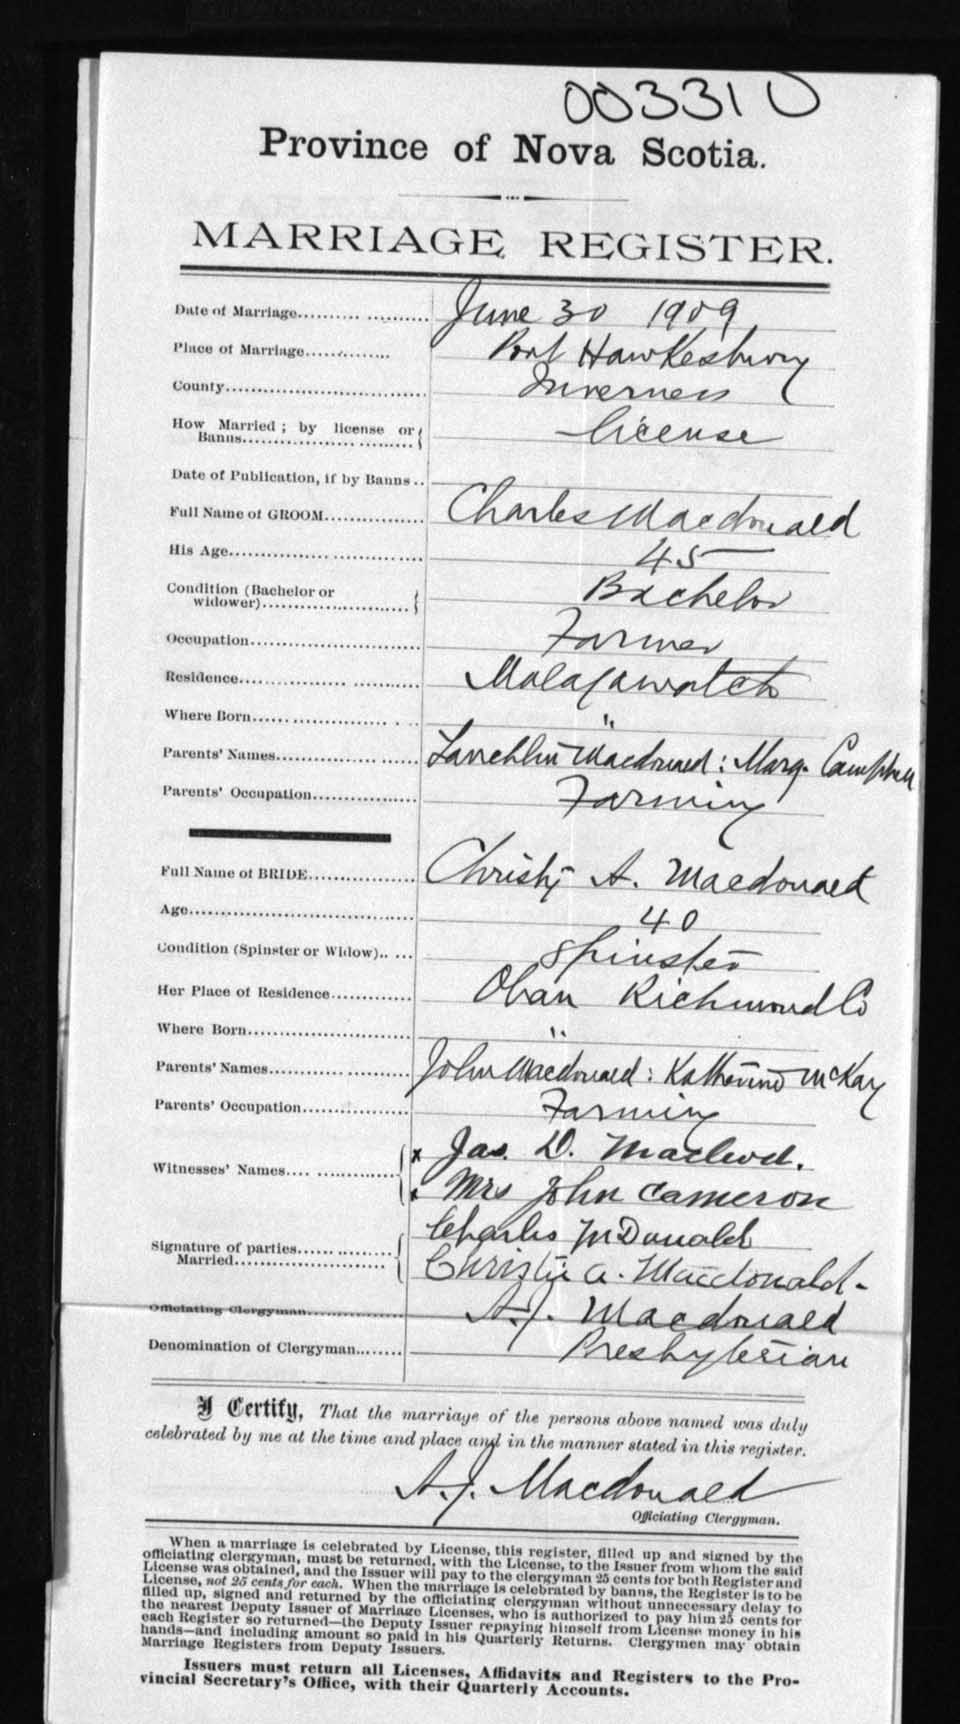 003310
Province of Nova Scotia.
MARRIAGE REGISTER.
Date of Marriage.......... ........... June 30 1909
Place of Marriage.............. Port Hawkesbury
County.................................... Inverness
How Married ; by license or Banns.................... ......... { License
Date of Publication, if by Banns ..
Full Name of GROOM................ Charles Macdonald
His Age................... ............... 45
Condition (Bachelor or widower)............. ......... { Bachelor
Occupation............................... Farmer
Residence.................. ........... Malagawatch
Where Born...................... . .. "
Parents' Names.................. ...... Lauchlin Macdonald : Marg. Campbell
Parents' Occupation.................. Farming
Full Name of BRIDE................ Christy A. Macdonald
Age...................................... 40
Condition (Spinster or Widow).. .... Spinster
Her Place of Residence............. Oban Richmond Co
Where Born............................ "
Parents' Names............. ......... John Macdonald : Katherine McKay
Parents' Occupation.................. Farming
Witnesses' Names.... ............... { x Jas. D. Macleod.
x Mrs John Cameron
Signature of parties Married........................ { Charles McDonald
Christie A. Macdonald-
Officiating Clergyman................. A. J. Macdonald
Denomination of Clergyman....... Presbyterian
I Certify, That the marriage of the persons above named was duly
celebrated by me at the time and place and in the manner stated in this register.
A. J. Macdonald
Officiating Clergyman.
When a marriage is celebrated by License, this register, filled up and signed by the
officiating clergyman, must be returned, with the License, to the Issuer from whom the said
License was obtained, and the Issuer will pay to the clergyman 25 cents for both Register and
License, not 25 cents for each. When the marriage is celebrated by banns, the Register is to be
filled up, signed and returned by the officiating clergyman without unnecessary delay to
the nearest Deputy Issuer of Marriage Licenses, who is authorized to pay him 25 cents for
each Register so returned—the Deputy Issuer repaying himself from License money in his
hands—and including amount so paid in his Quarterly Returns. Clergymen may obtain
Marriage Registers from Deputy Issuers.
Issuers must return all Licenses, Affidavits and Registers to the Pro-
vincial Secretary's Office, with their Quarterly Accounts.